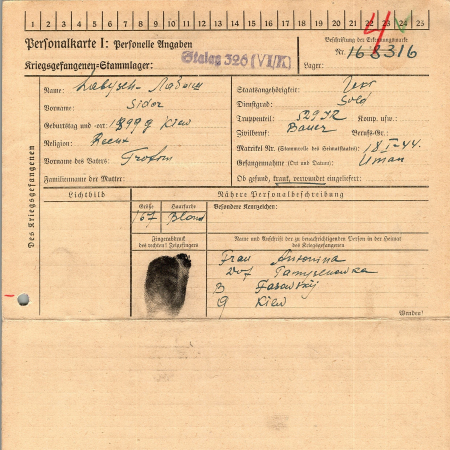 1 2 3 4 5 6 7 8 9 10 11 12 13 14 15 16 17 18 19 20 21 22 23 24 25
4
Personalkarte I: Personelle Angaben
Beschriftung der Erkennungsmarke
Stalag 326 (VI/K)
Nr. 168316
Kriegsgefangenen-Stammlager:
Lager:
Des Kriegsgefangenen
Name:
Vorname: Sidor
Geburtstag und -ort: Kiew
Religion:
Vorname des Vaters: Trofim
Familienname der Mutter:
Staatsangehörigkeit:
Dienstgrad: Sold
Truppenteil: Komp. usw.:
Zivilberuf: Bauer Berufs-Gr.:
Matrikel Nr. (Stammrolle des Heimatstaates): 18 I-44.
Gefangennahme (Ort und Datum): Uman
Ob gesund, krank, verwundet eingeliefert:
Lichtbild
Nähere Personalbeschreibung
Größe Haarfarbe Besondere Kennzeichen:
167 Blond
Fingerabdruck
des rechten! Zeigefingers
Name und Anschrift der zu benachrichtigenden Person in der Heimat
des Kriegsgefangenen
Frau Antonina
Dorf
Kiew
Wenden!